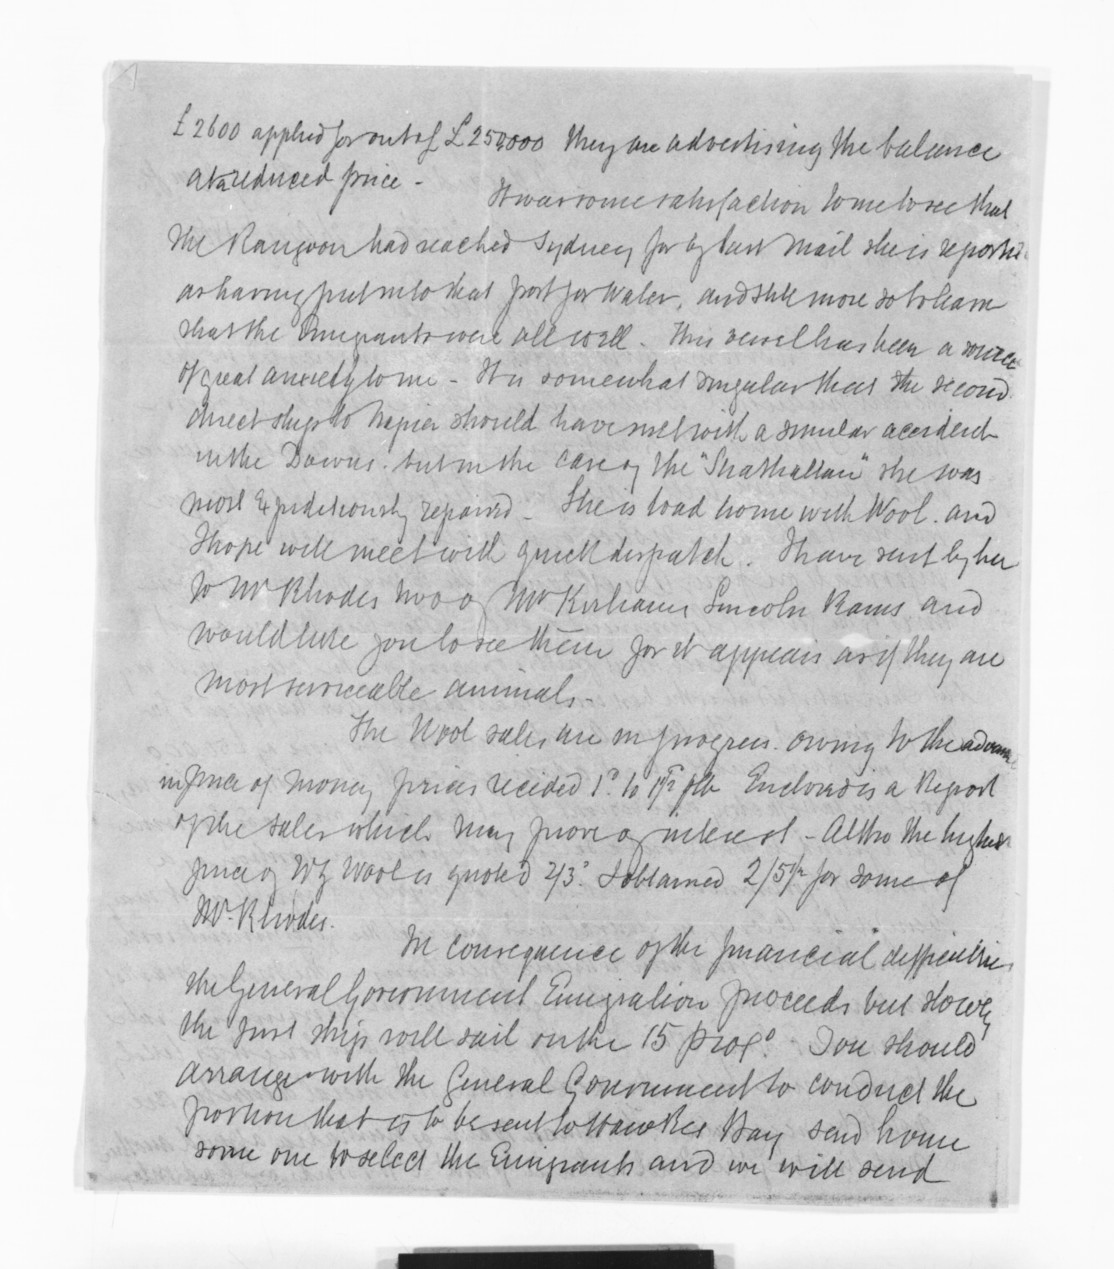 £2600 applied for out of £250,000 they are advertising the balance
at a reduced price -
It was some satisfaction to me to see that
the Rangoon had reached Sydney for by last Mail she is reported
as having put into that port for Water, and still more so to learn
that the Emigrants were all well. This vessel has been a source
of great anxiety to me - It is somewhat singular that the second
direct ship to Napier should have met with a similar accident
in the Downs. but in the case of the "Strathallan" she was
most Expeditiously repaired - She is to load home with Wool. and
I hope will meet with quick dispatch. I have sent by her
to Mr Rhodes two of Mr Kirkhams Lincoln Rams and
would like you to see them for it appears as if they are
most serviceable animals -
The Wool sales are in progress. owing to the advance
in price of Money prices receded 1d to 1½ p lb Enclosed is a Report
of the sales which may prove of interest - Altho the highest
price of NZ Wool is quoted 2/3d I obtained 2/5½ for some of
Mr Rhodes.
In consequence of the financial difficulties
the General Government Emigration proceeds but slowly
the first ship will sail on the 15 proxo. You should
arrange with the General Government to conduct the
portion that is to be sent to Hawkes Bay send home
some one to select the Emigrants and we will send